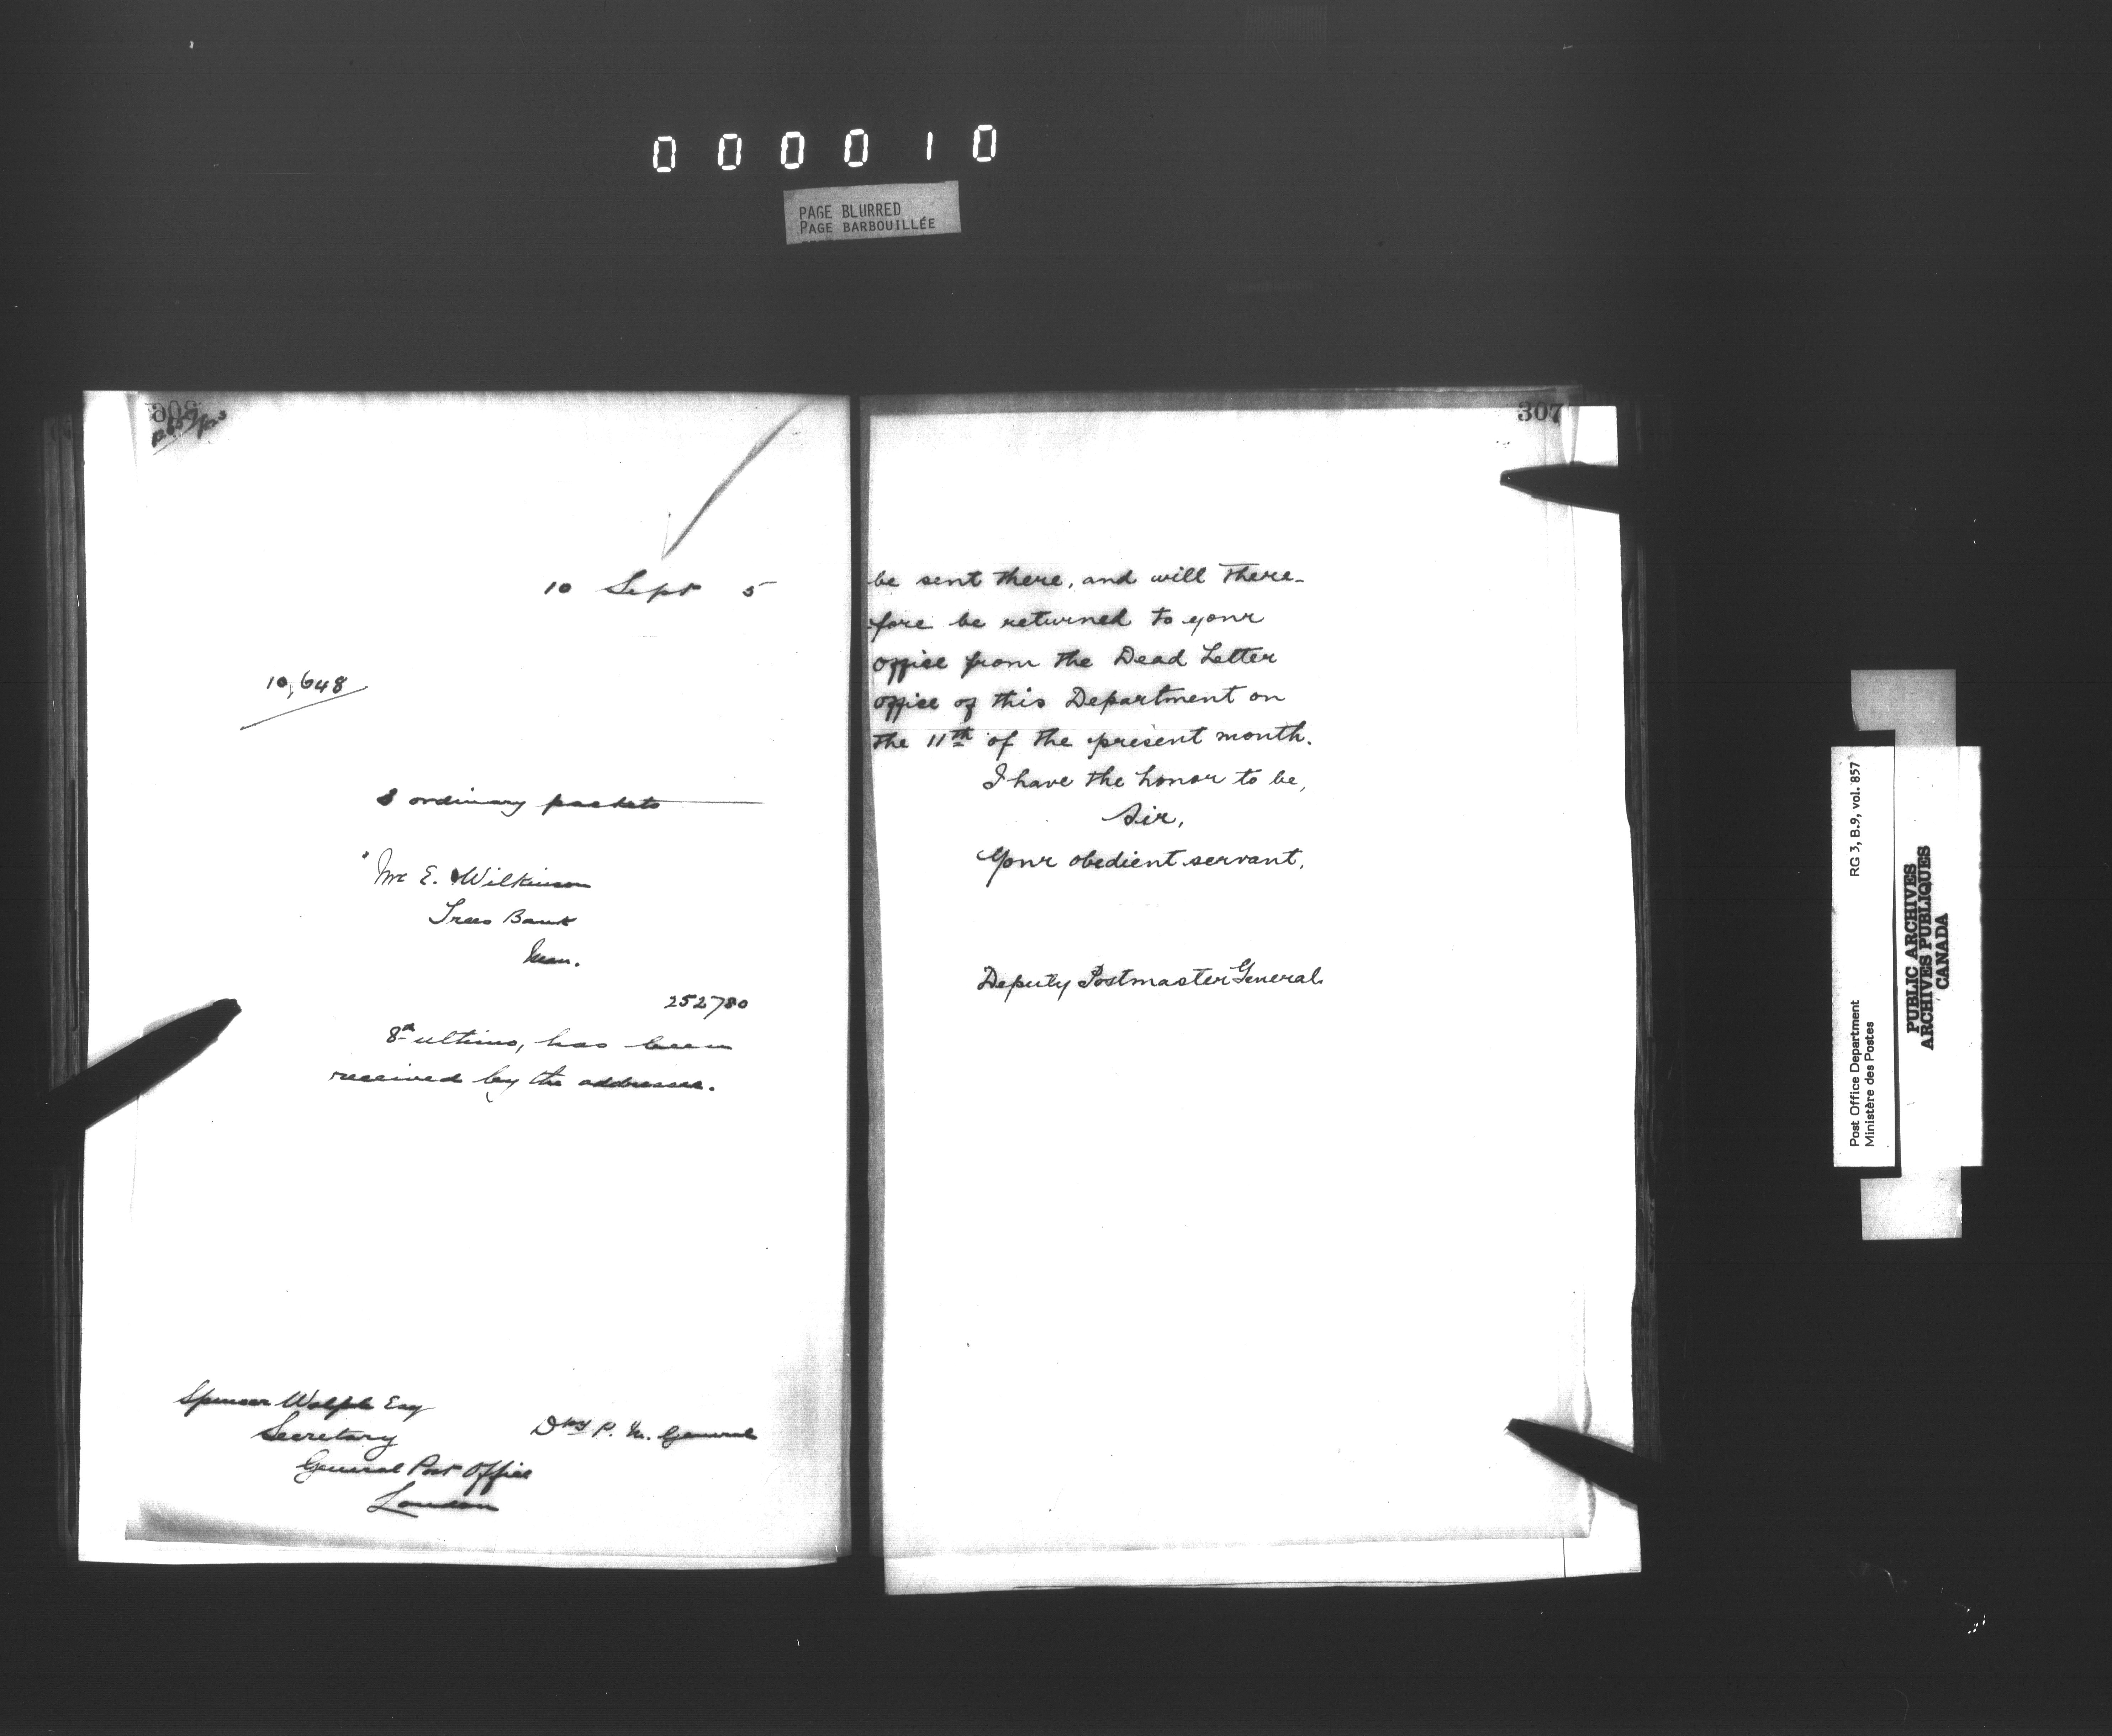 000010
PAGE BLURRED
PAGE BARBOUILLÉE
306
10 Sept 5
10,648
3 ordinary packets
"Mr E. Wilkinson
Trees Bank
Man.
252780
8th ultimo, has been
received by the addressee.
Spencer Walpole Esq
Secretary
General Post Office
London
Dty P. M. General
307
be sent there, and will there-
fore be returned to your
office from the Dead Letter
office of this Department on
the 11th of the present month.
I have the honor to be,
Sir,
Your obedient servant,
Deputy Postmaster General.
Post Office Department
Ministère des Postes
RG 3, B.9, vol. 857
PUBLIC ARCHIVES
ARCHIVES PUBLIQUES
CANADA